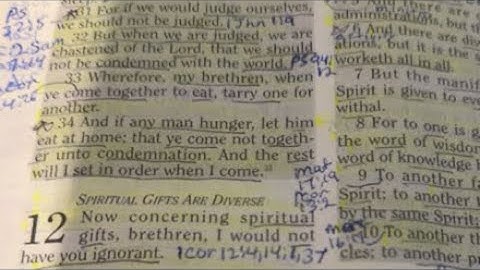 31 For if we would judge ourselves,
we should not be judged. 1 Jhn 1:9
32 But when we are judged, we are
chastened of the Lord, that we should
not be condemned with the world.
33 Wherefore, my brethren, when
ye come together to eat, tarry one for
another.
34 And if any man hunger, let him
eat at home; that ye come not togeth-
er unto condemnation. And the rest
will I set in order when I come.
SPIRITUAL GIFTS ARE DIVERSE
12 Now concerning spiritual
gifts, brethren, I would not
have you ignorant. 1 Cor 12:4, 14:1, 37
PS
2 Sam
5 And there are
administrations, but
6 And there are
ations, but it is the
worketh all in all.
7 But the manif
Spirit is given to eve
withal.
8 For to one is g
the word of wisdom
word of knowledge
9 To another fa
Spirit; to another
by the same Spirit;
10 To another th
cles; to another pro